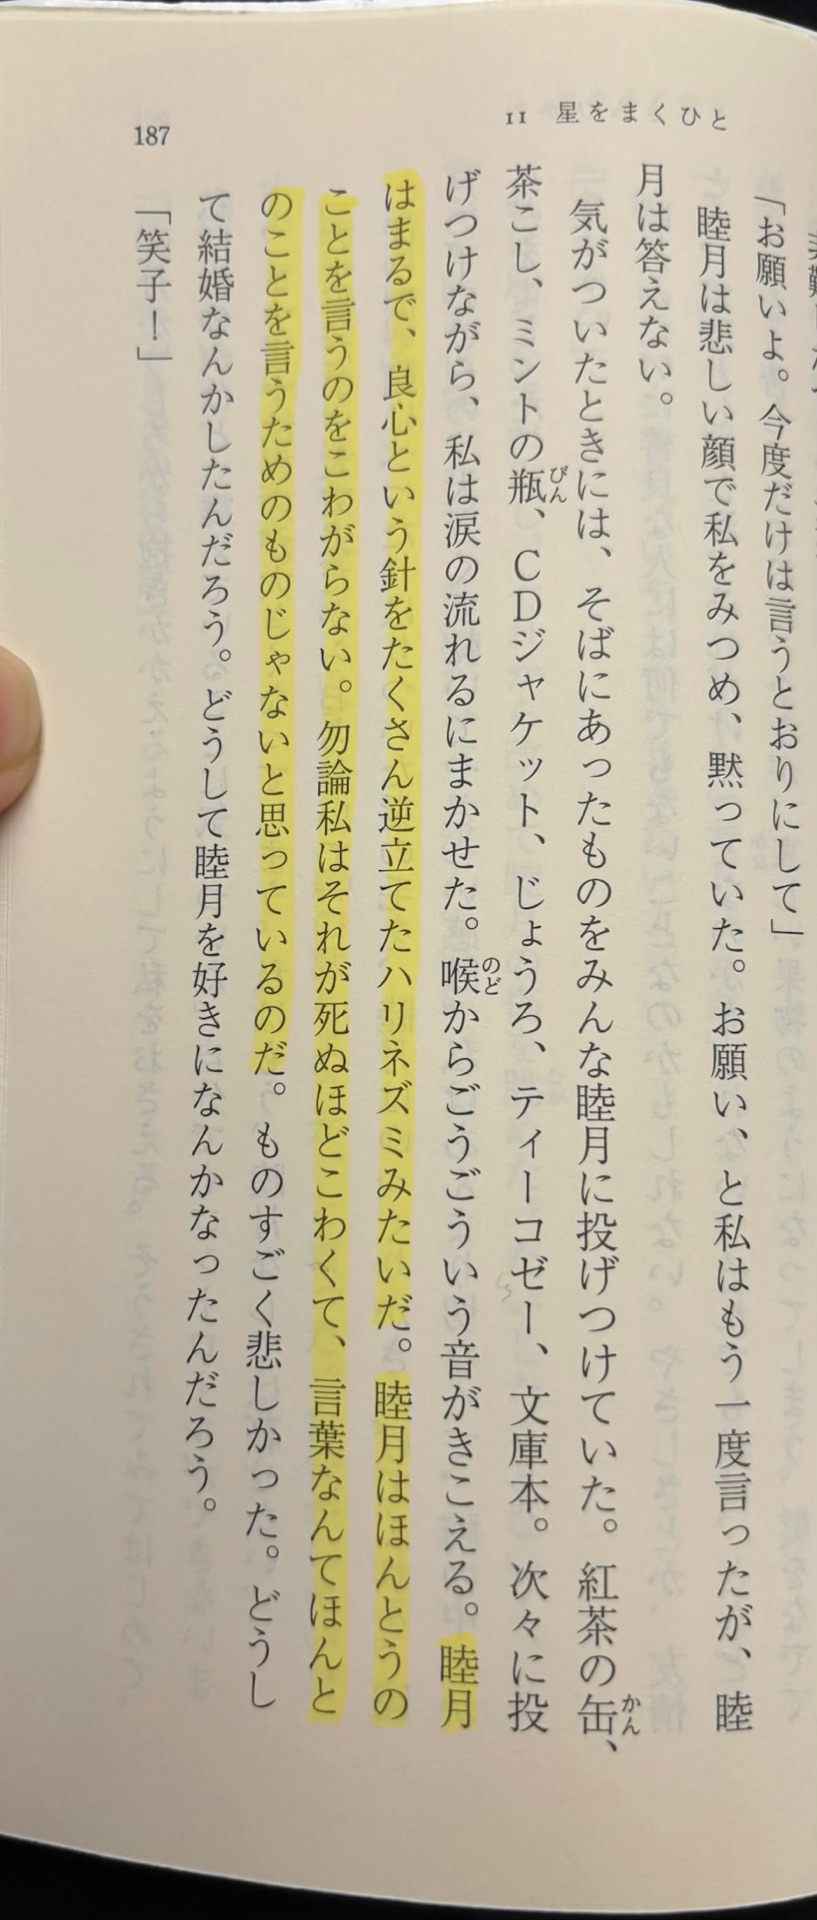 11 星をまくひと
187
「お願いよ。今度だけは言うとおりにして」
睦月は悲しい顔で私をみつめ、黙っていた。お願い、と私はもう一度言ったが、睦
月は答えない。
気がついたときには、そばにあったものをみんな睦月に投げつけていた。紅茶の缶、
茶こし、ミントの瓶、CDジャケット、じょうろ、ティーコゼー、文庫本。次々に投
げつけながら、私は涙の流れるにまかせた。喉からごうごういう音がきこえる。睦月
はまるで、良心という針をたくさん逆立てたハリネズミみたいだ。睦月はほんとうの
ことを言うのをこわがらない。勿論私はそれが死ぬほどこわくて、言葉なんてほんと
のことを言うためのものじゃないと思っているのだ。ものすごく悲しかった。どうし
て結婚なんかしたんだろう。どうして睦月を好きになんかなったんだろう。
「笑子！」